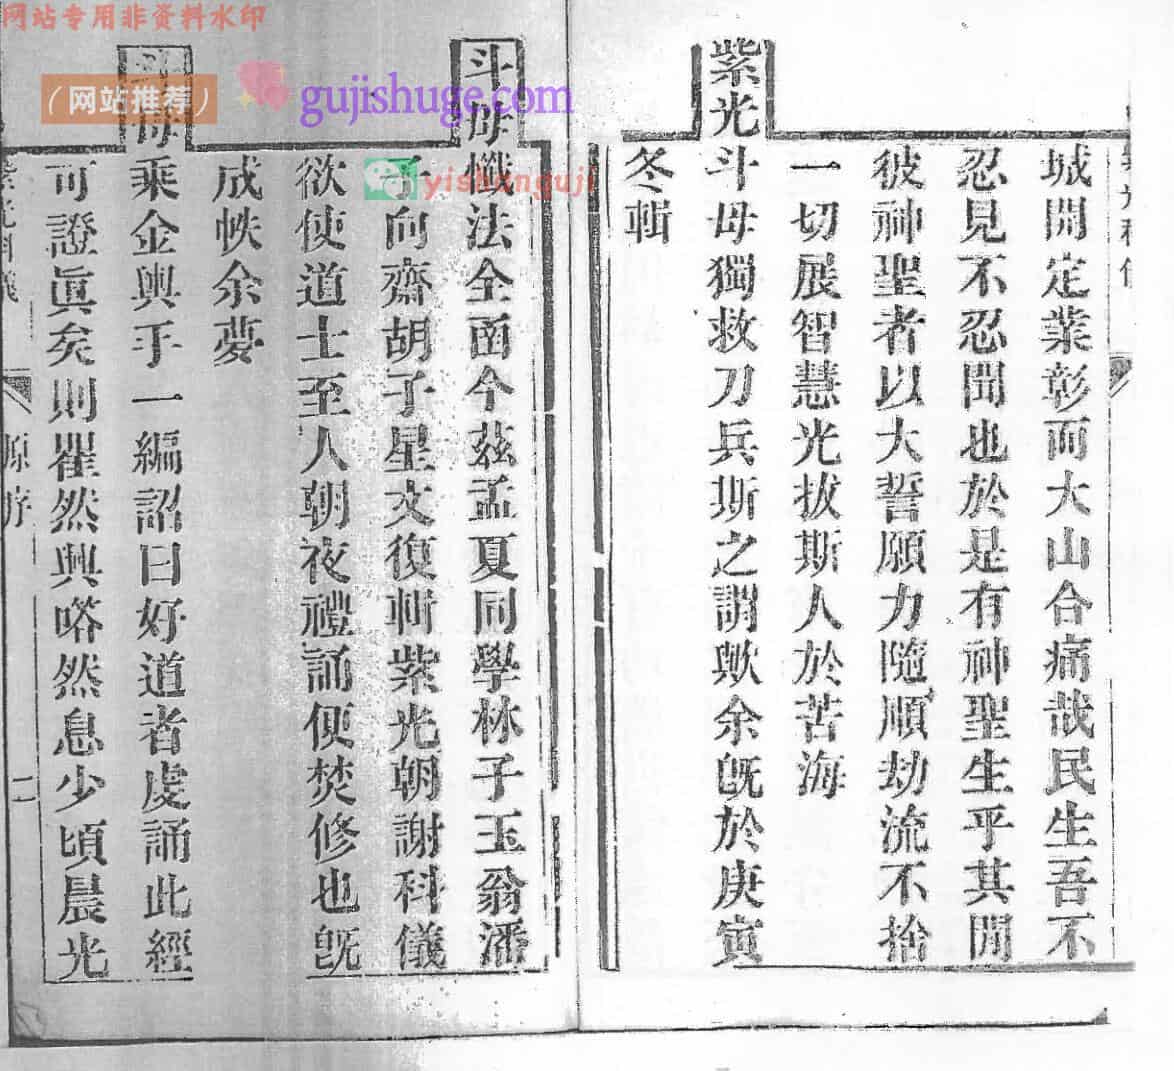 网站专用非资料水印
（网站推荐）
gujishuge.com
yishanguji
城開定業彰而大山合痛哉民生吾不
忍見不忍聞也於是有神聖生乎其閒
彼神聖者以大誓願力隨順劫流不捨
一切展智慧光拔斯人於苦海
紫光斗母獨救刀兵斯之謂歟余旣於庚寅
冬輯
斗母懺法全函今茲孟夏同學林子玉翁潘
子向齋胡子星文復輯紫光朝謝科儀
欲使道士至人朝夜禮誦便焚修也旣
成帙余夢
斗母乘金輿手一編詔曰好道者虔誦此經
可證眞矣則瞿然興嗒然息少頃晨光
紫光科儀
序
二